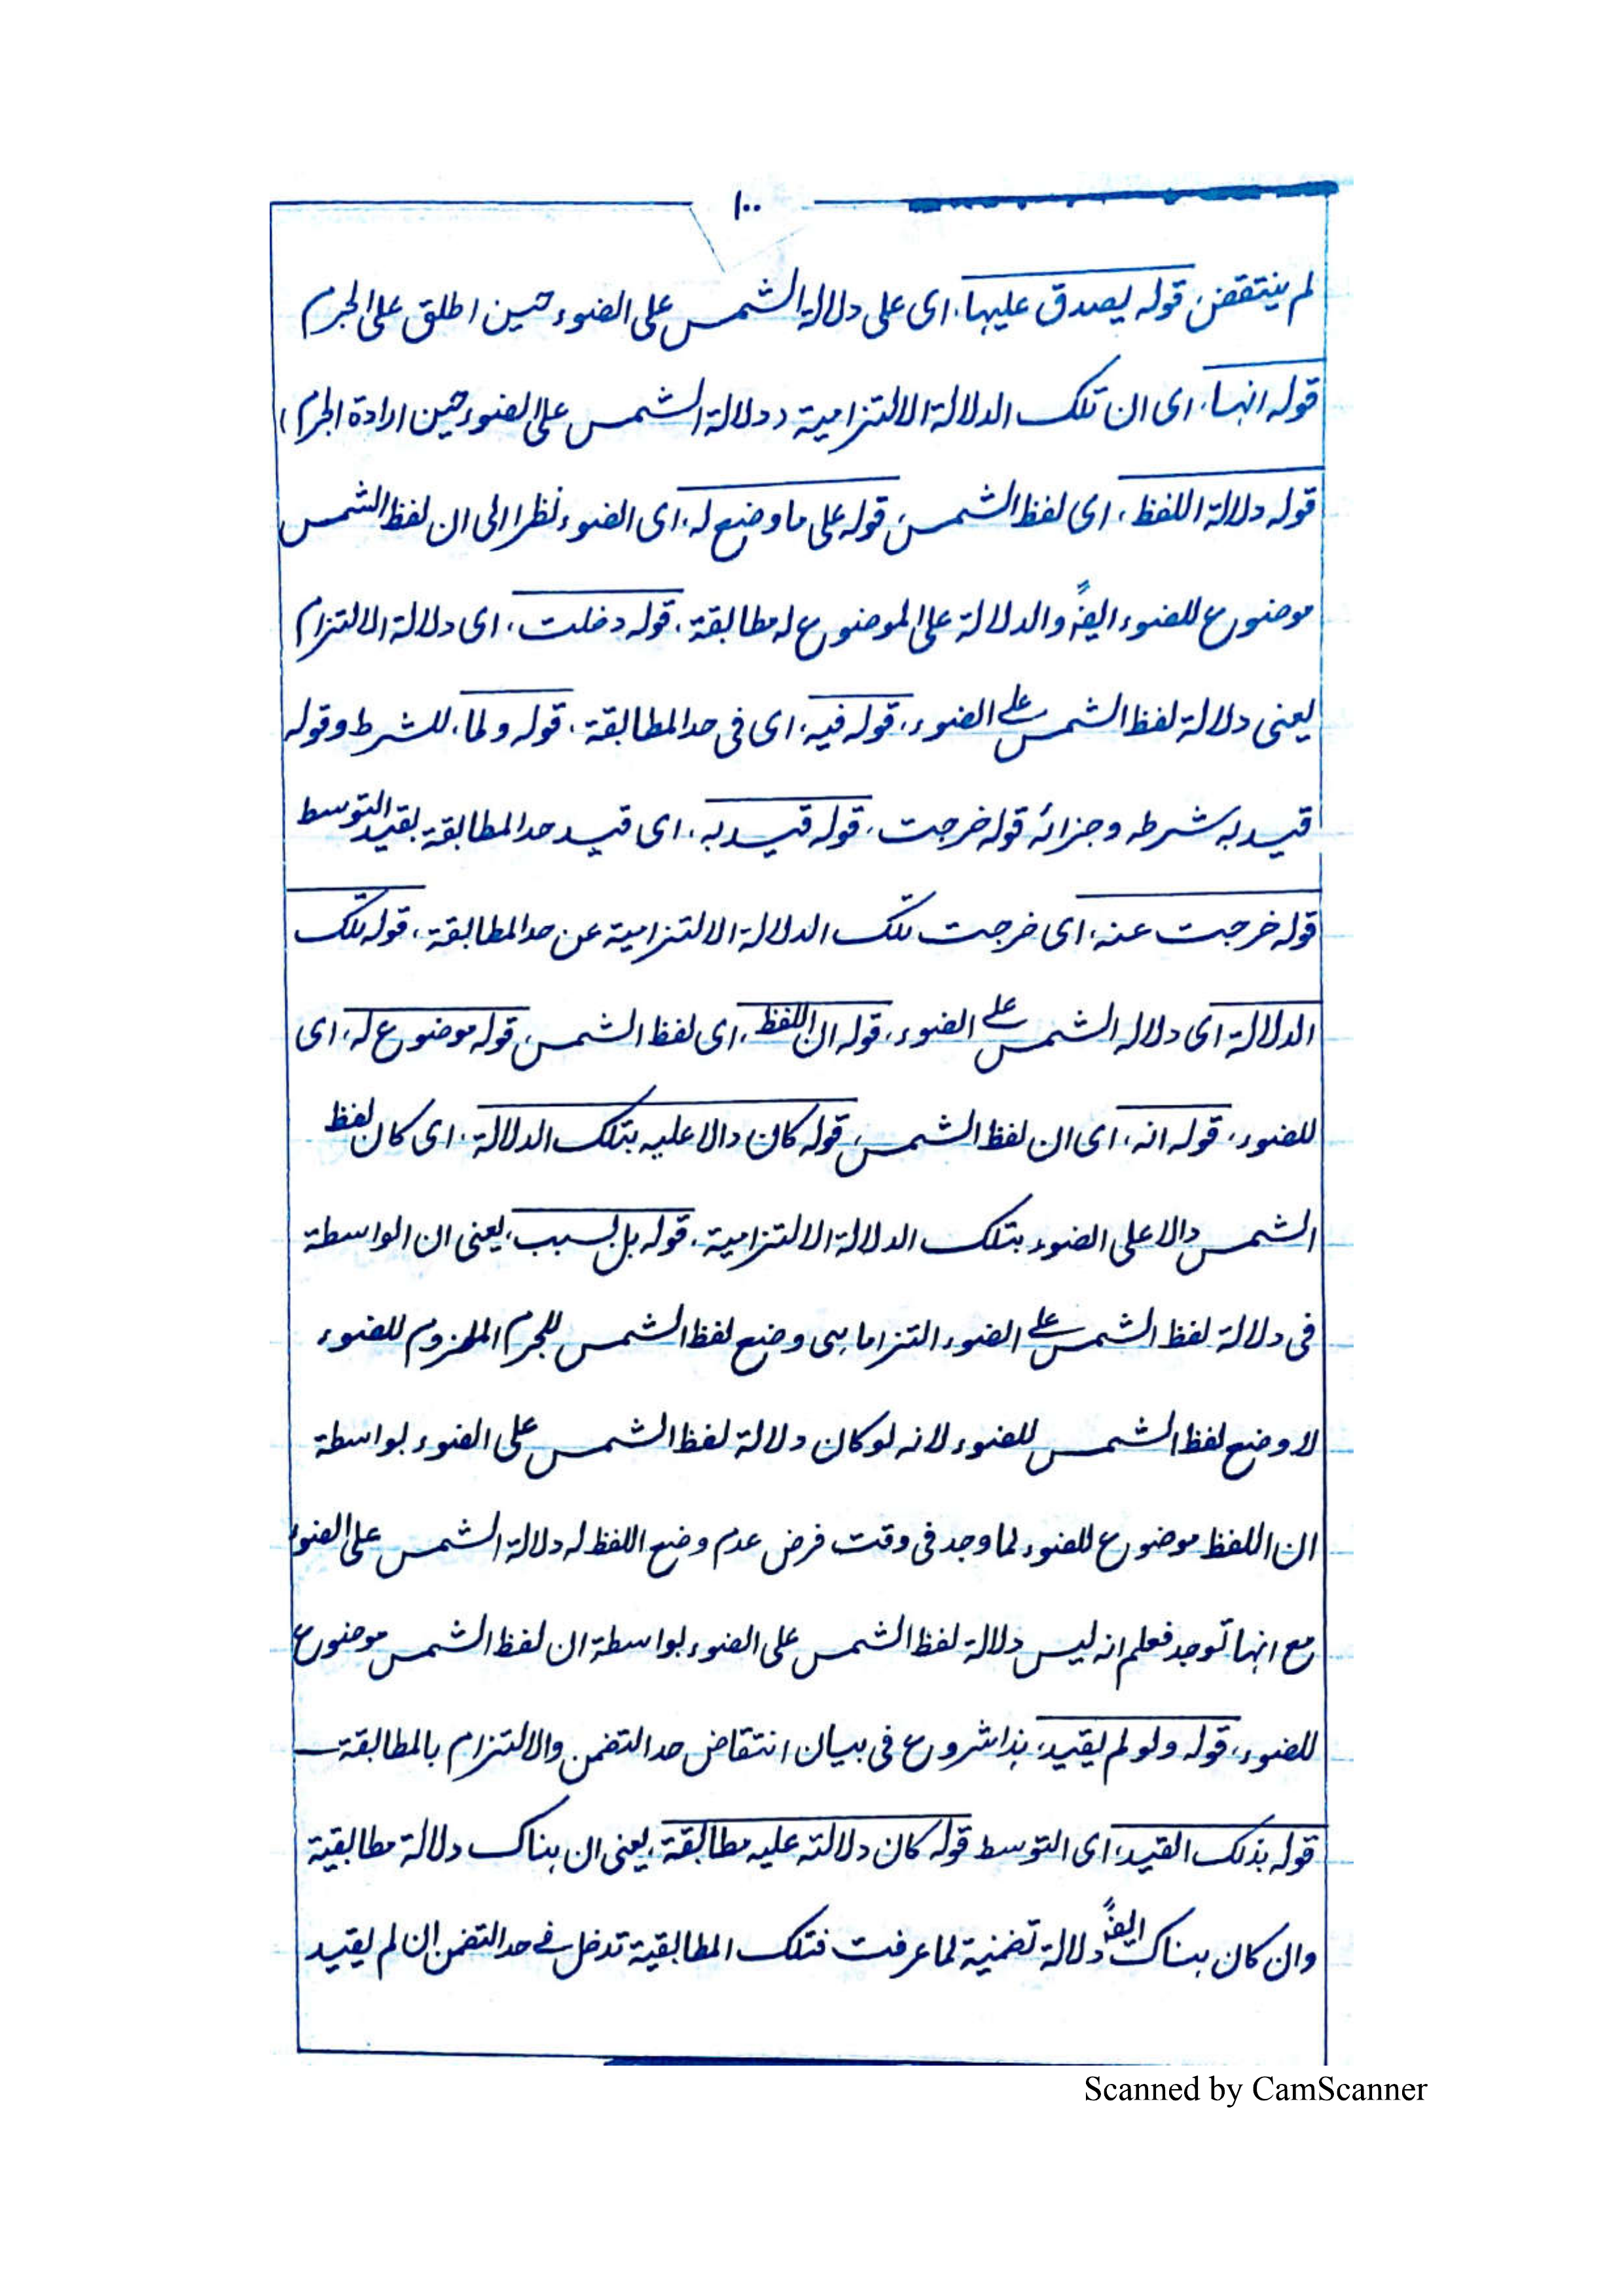 ١٠٠
لم ينتقض، قوله يصدق عليها، اى على دلالة الشمس على الضوء حين اطلق على الجرم
قوله انها، اى ان تلك الدلالة الالتزامية (دلالة الشمس على الضوء حين ارادة الجرم)
قوله دلالة اللفظ، اى لفظ الشمس، قوله على ما وضع له، اى الضوء نظرا الى ان لفظ الشمس
موضوع للضوء ايضًا والدلالة على الموضوع له مطابقة، قوله دخلت، اى دلالة الالتزام
يعنى دلالة لفظ الشمس على الضوء، قوله فيه، اى فى حد المطابقة، قوله ولما، للشرط وقوله
قيد به شرطه وجزائه قوله خرجت، قوله قيد به، اى قيد حد المطابقة بقيد التوسط
قوله خرجت عنه، اى خرجت تلك الدلالة الالتزامية عن حد المطابقة، قوله تلك
الدلالة اى دلاله الشمس على الضوء، قوله ان اللفظ، اى لفظ الشمس، قوله موضوع له، اى
للضوء، قوله انه، اى ان لفظ الشمس، قوله كان دالا عليه بتلك الدلالة، اى كان لفظ
الشمس دالا على الضوء بتلك الدلالة الالتزامية، قوله بل بسبب، يعنى ان الواسطة
فى دلالة لفظ الشمس على الضوء التزاما هى وضع لفظ الشمس للجرم الملزوم للضوء
لا وضع لفظ الشمس للضوء لانه لو كان دلالة لفظ الشمس على الضوء بواسطة
ان اللفظ موضوع للضوء لما وجد فى وقت فرض عدم وضع اللفظ له دلالة الشمس على الضوء
مع انها توجد فعلم انه ليس دلالة لفظ الشمس على الضوء بواسطة ان لفظ الشمس موضوع
للضوء، قوله ولو لم يقيد، هذا شروع فى بيان انتقاض حد التضمن والالتزام بالمطابقة
قوله بذلك القيد، اى التوسط قوله كان دلالته عليه مطابقة، يعنى ان هناك دلالة مطابقية
وان كان هناك ايضًا دلالة تضمنية لما عرفت فتلك المطابقية تدخل فى حد التضمن ان لم يقيد
Scanned by CamScanner